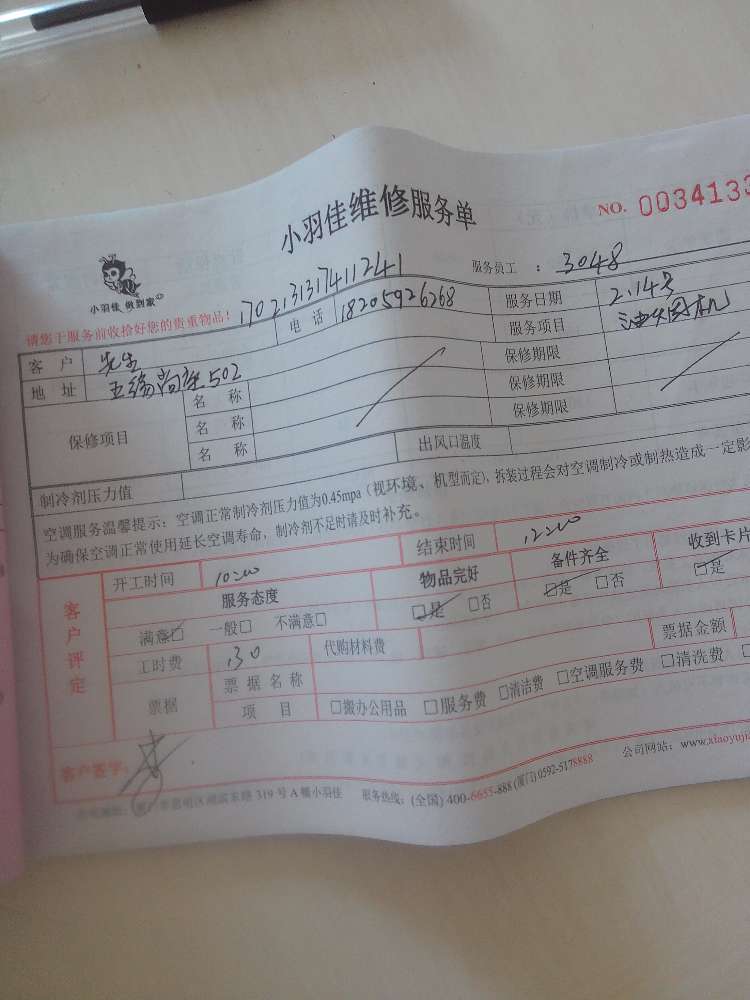 小羽佳维修服务单
NO. 0034133
小羽佳 做到家
服务员工：3048
请您于服务前收拾好您的贵重物品！ 1702131317411241
客 户 先生 电 话 18205926268 服务日期 2.14号
地 址 五缘尚座502 服务项目 油烟机
保修项目
名 称 保修期限
名 称 保修期限
名 称 保修期限
制冷剂压力值 出风口温度
空调服务温馨提示：空调正常制冷剂压力值为0.45mpa（视环境、机型而定），拆装过程会对空调制冷或制热造成一定影
为确保空调正常使用延长空调寿命，制冷剂不足时请及时补充。
客户评定
开工时间 10:00 结束时间 12:00
服务态度 物品完好 备件齐全 收到卡片
满意□ 一般□ 不满意□ □是 □否 □是 □否 □是
工时费 130 代购材料费 票据金额
票据 票据名称
项 目 □搬办公用品 □服务费 □清洁费 □空调服务费 □清洗费
客户签字：
319号A幢小羽佳 服务热线：(全国) 400-6655-888 (厦门) 0592-5178888 公司网站：www.xiaoyujia